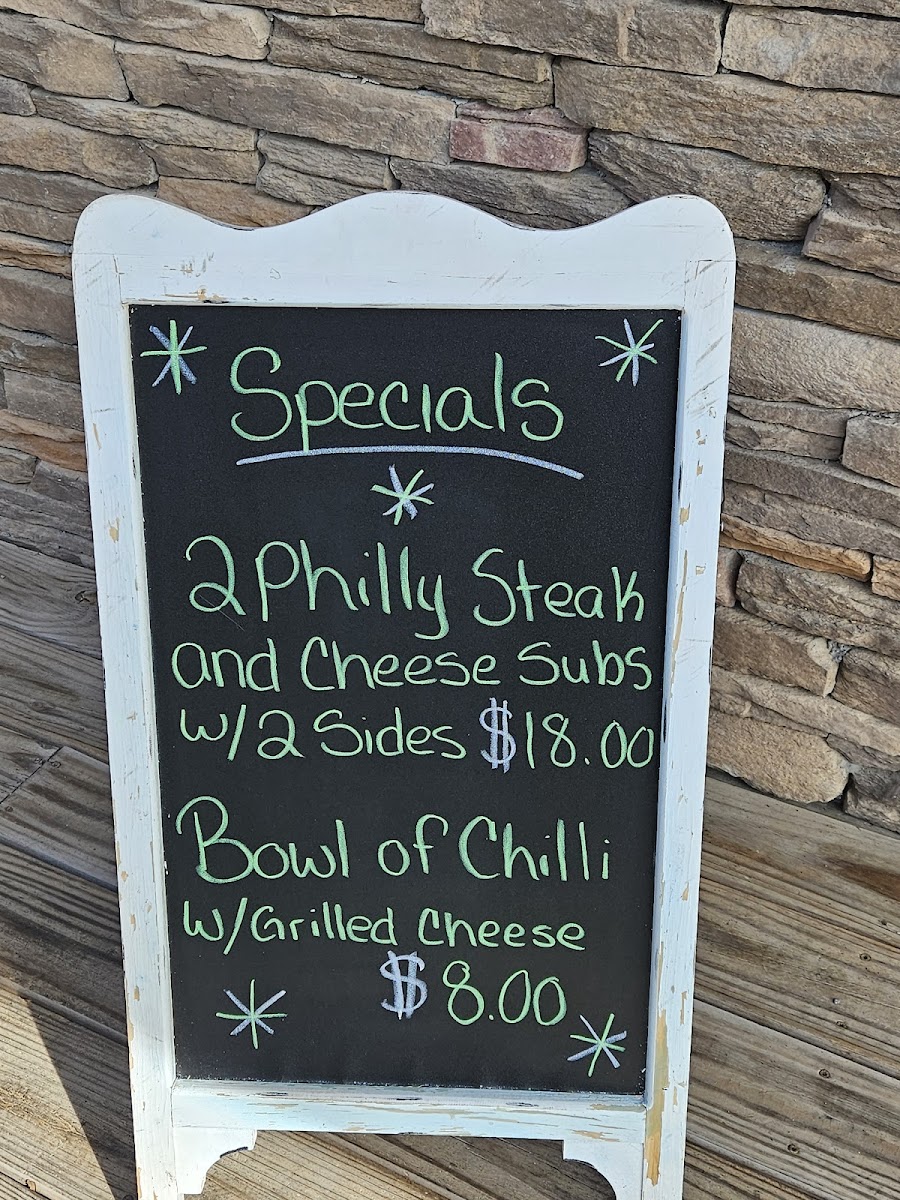 Specials
2 Philly Steak
and Cheese Subs
w/2 Sides $18.00
Bowl of Chilli
w/Grilled Cheese
$8.00